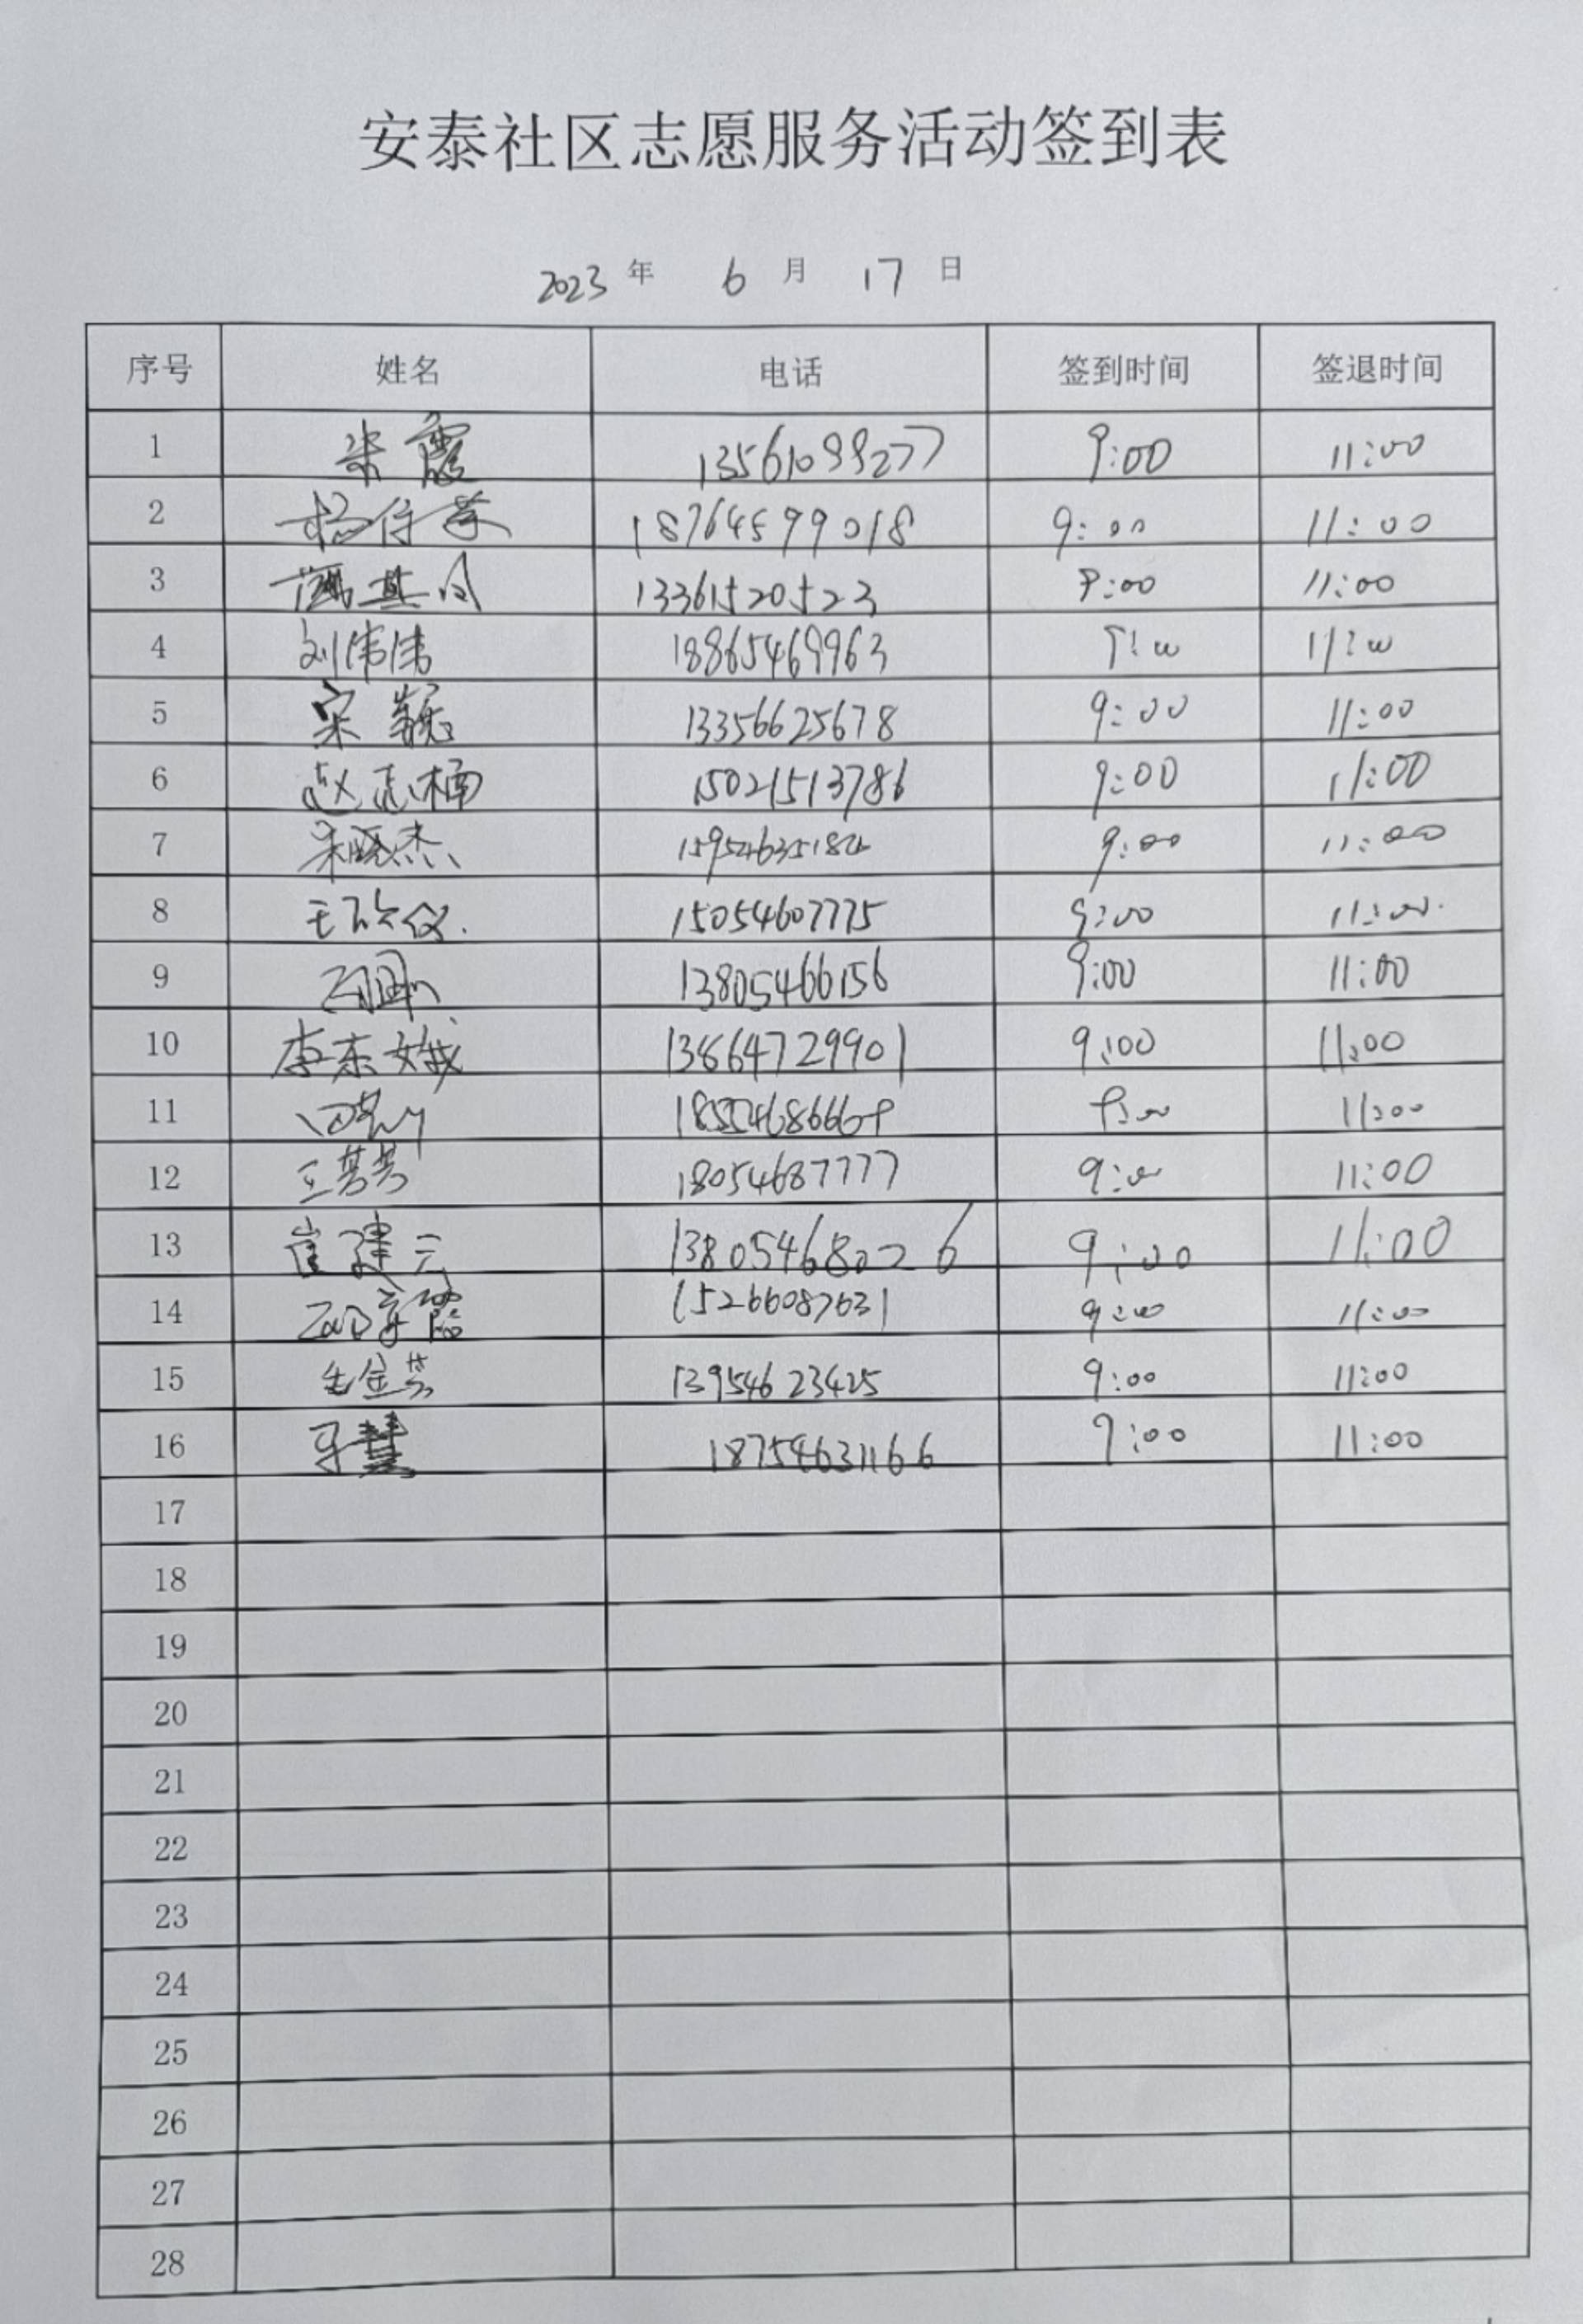 安泰社区志愿服务活动签到表
2023 年 6 月 17 日
序号 姓名 电话 签到时间 签退时间
1 霞 13561099277 9:00 11:00
2 杨 18764599018 9:00 11:00
3 13361520523 9:00 11:00
4 刘伟伟 18865469963 9:00 11:00
5 宋巍 13356625678 9:00 11:00
6 赵志楠 15021513786 9:00 11:00
7 宋晓杰 15954635184 9:00 11:00
8 王 仪 15054607775 9:00 11:00
9 13805466156 9:00 11:00
10 李东娥 13864729901 9:00 11:00
11 9:00 11:00
12 王芳芳 18054687777 9:00 11:00
13 崔建云 13805468026 9:00 11:00
14 15266087631 9:00 11:00
15 金芳 13954623425 9:00 11:00
16 慧 18754631166 9:00 11:00
17
18
19
20
21
22
23
24
25
26
27
28